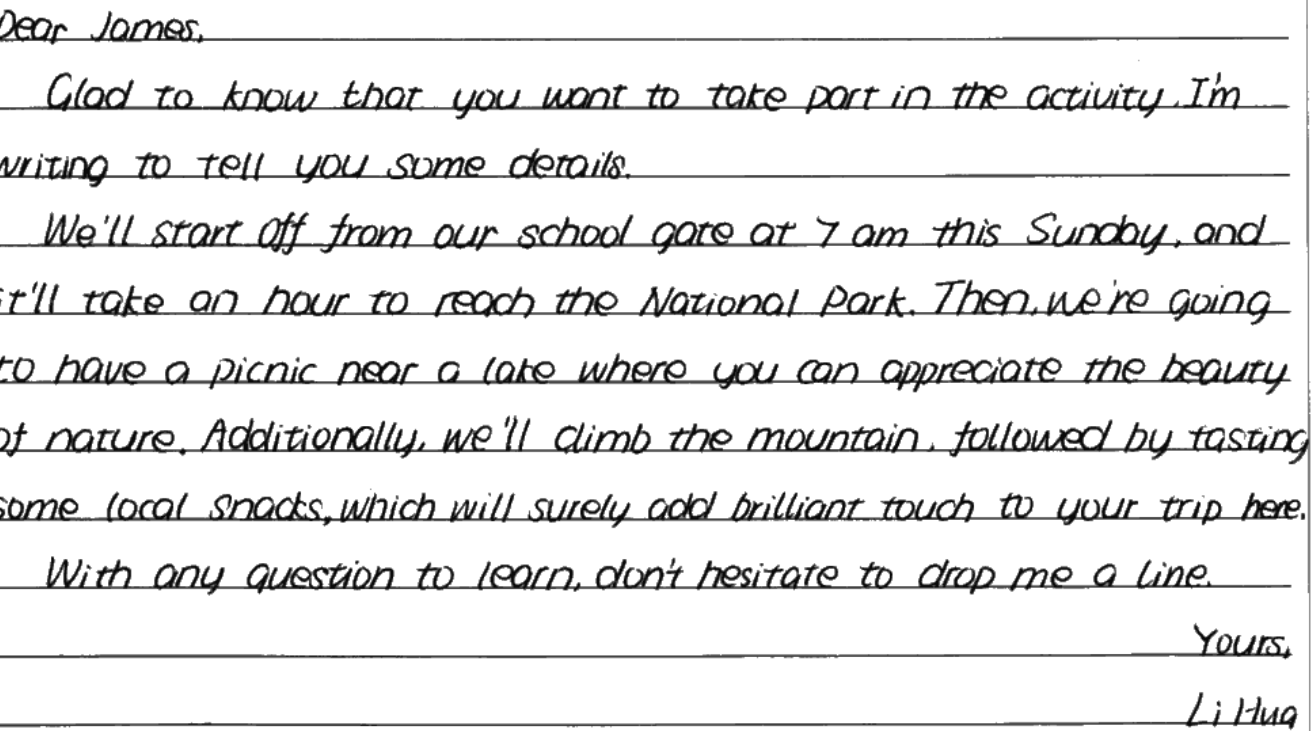 Dear James,
Glad to know that you want to take part in the activity. I'm
writing to tell you some details.
We'll start off from our school gate at 7 am this Sunday, and
it'll take an hour to reach the National Park. Then, we're going
to have a picnic near a lake where you can appreciate the beauty
of nature. Additionally, we'll climb the mountain, followed by tasting
some local snacks, which will surely add brilliant touch to your trip here.
With any question to learn, don't hesitate to drop me a line.
Yours,
Li Hua